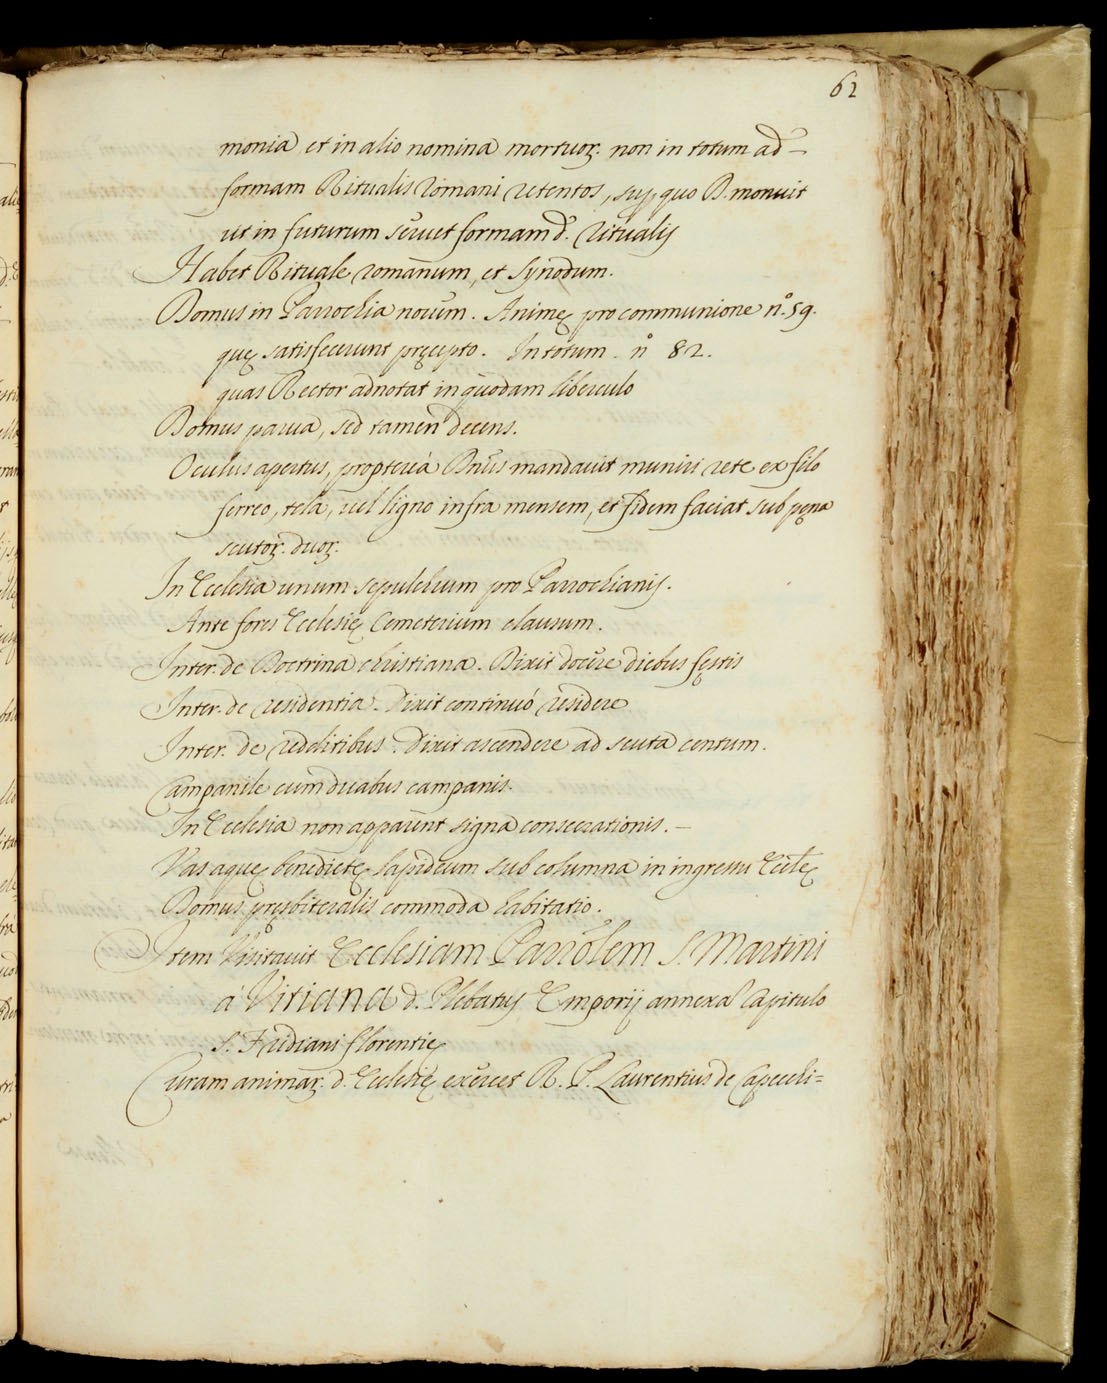 62
monia et in alio nomina mortuoꝝ. non in totum ad
formam Ritualis Romani retentos, sup. quo D. monuit
ut in futurum seruet formam d. Ritualis
Habet Rituale romanum, et Synodum.
Domus in Parrochia nouem. Animę pro communione nº. 59.
quę satisfecerunt pręcepto. In totum nº 82.
quas Rector adnotat in quodam liberculo
Domus parua, sed tamen decens.
Oculus apertus, propterea Dnus mandauit muniri rete ex filo
ferreo, tela, uel ligno infra mensem, et fidem faciat sub pęna
scutoꝝ. duoꝝ.
In Ecclesia unum sepulchrum pro Parrochianis.
Ante fores Ecclesię Cemeterium clausum.
Inter. de Doctrina christiana. Dixit docere diebus festis
Inter. de residentia. Dixit continuó residere
Inter. de redditibus. Dixit ascendere ad scuta centum.
Campanile cum duabus campanis.
In Ecclesia non apparent signa consecrationis. —
Vas aquę benedictę lapideum sub columna in ingressu Ecclę
Domus pręsbiteralis commoda habitatio.
Item Visitauit Ecclesiam Parrolem S. Martini
á Vitiana d. Plebatus Emporij annexa Capitulo
S. Fridiani florentię
Curam animaꝝ. d. Ecclesię exercet R. P. Laurentius de Capecchi=